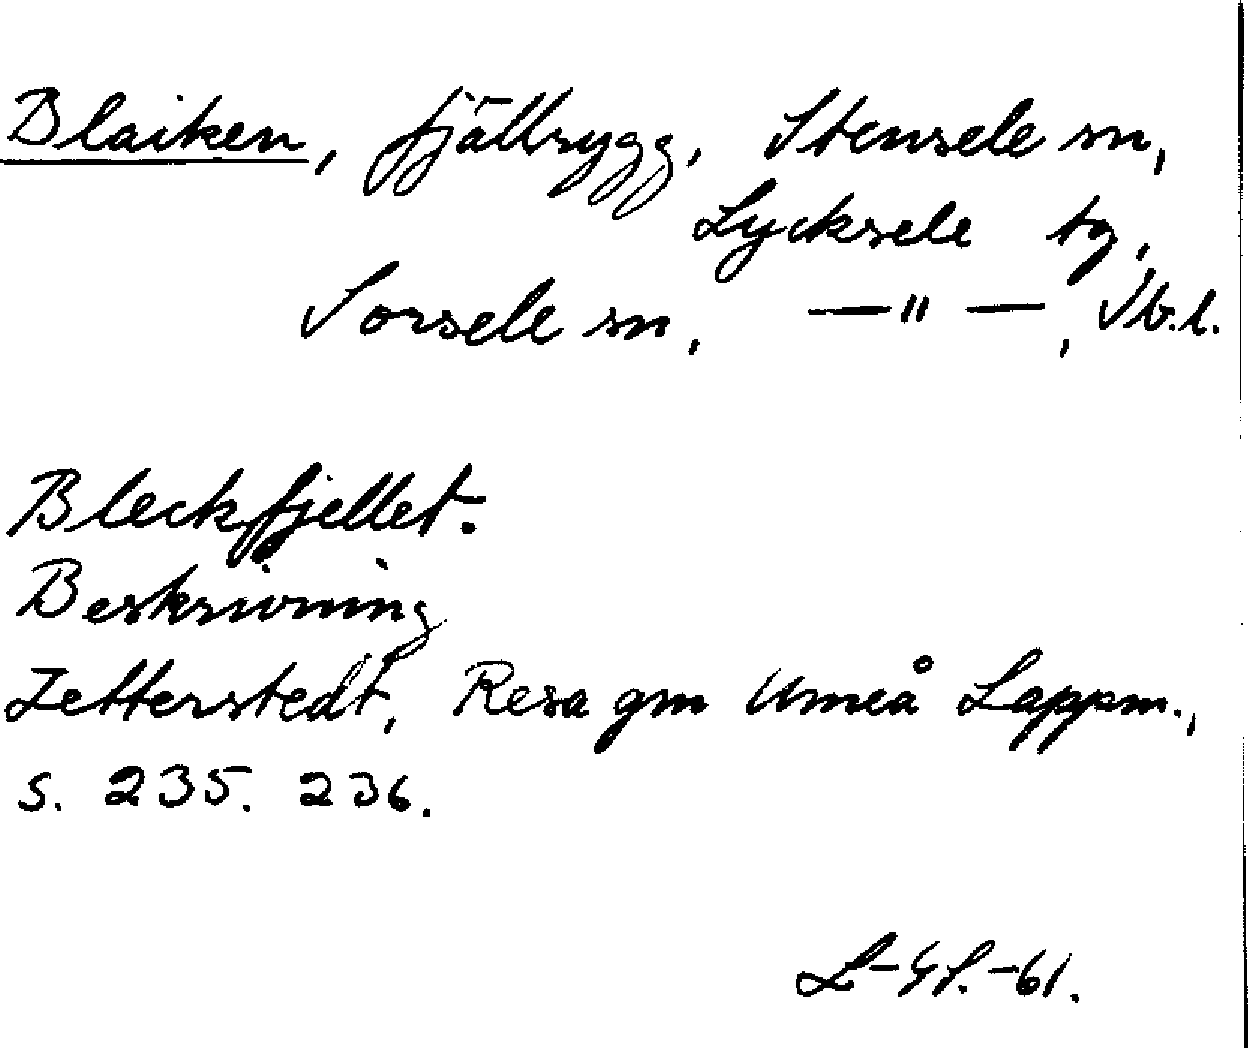 Blaiken, fjällrygg, Stensele sn,
Lycksele tg,
Sorsele sn, —"—, Vb.l.
Bleckfjellet.
Beskrivning
Zetterstedt, Resa gm Umeå Lappm.,
s. 235. 236.